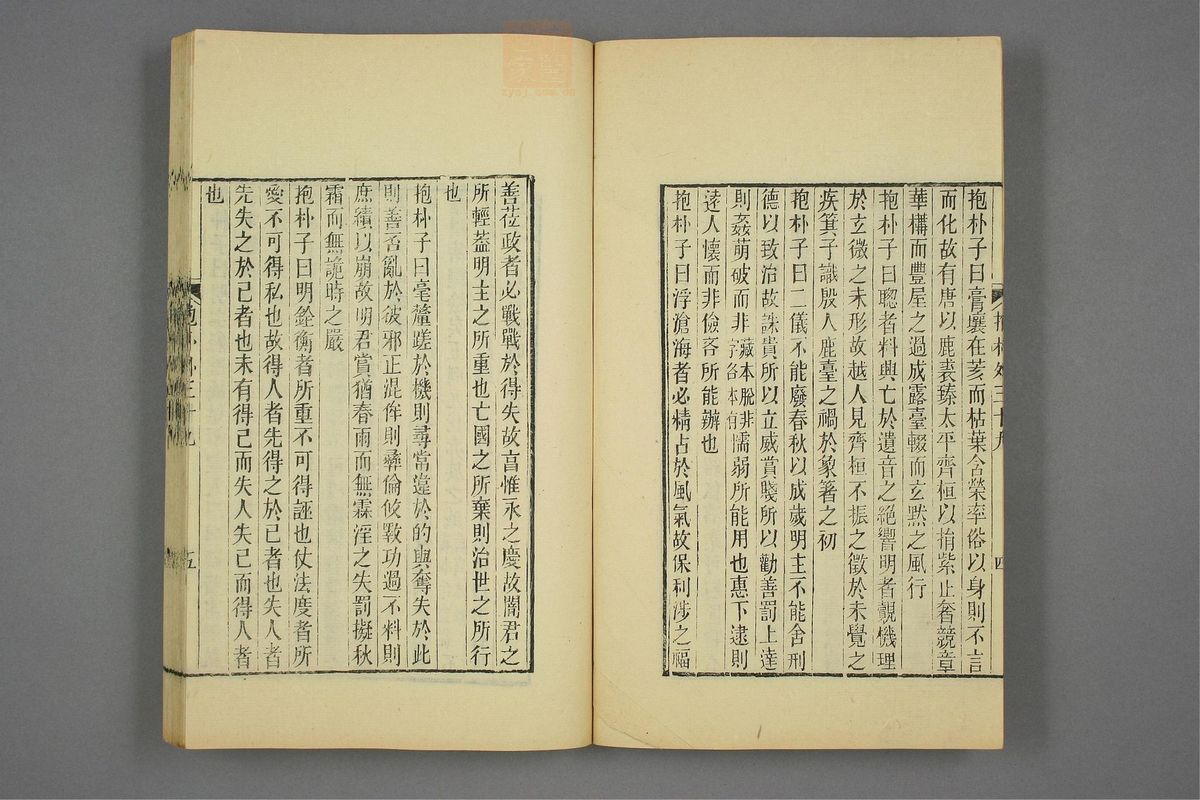 抱朴外三十九 四
抱朴子曰膏壤在荄而枯葉含榮率俗以身則不言
而化故有唐以鹿裘臻太平齊桓以捐紫止奢競章
華構而豐屋之過成露臺輟而玄默之風行
抱朴子曰聰者料興亡於遺音之絕響明者覿機理
於玄微之未形故越人見齊桓不振之徵於未覺之
疾箕子識殷人鹿臺之禍於象箸之初
抱朴子曰二儀不能廢春秋以成歲明主不能舍刑
德以致治故誅貴所以立威賞賤所以勸善罰上達
則姦萌破而非藏本脫非字各本有懦弱所能用也惠下逮則
遠人懷而非儉吝所能辦也
抱朴子曰浮滄海者必精占於風氣故保利涉之福
善莅政者必戰戰於得失故享惟永之慶故闇君之
所輕蓋明主之所重也亡國之所棄則治世之所行
也
抱朴子曰毫釐蹉於機則尋常違於的與奪失於此
則善否亂於彼邪正混侔則彝倫攸斁功過不料則
庶績以崩故明君賞猶春雨而無霖淫之失罰擬秋
霜而無詭時之嚴
抱朴子曰明銓衡者所重不可得誣也仗法度者所
愛不可得私也故得人者先得之於己者也失人者
先失之於己者也未有得己而失人失己而得人者
也
五